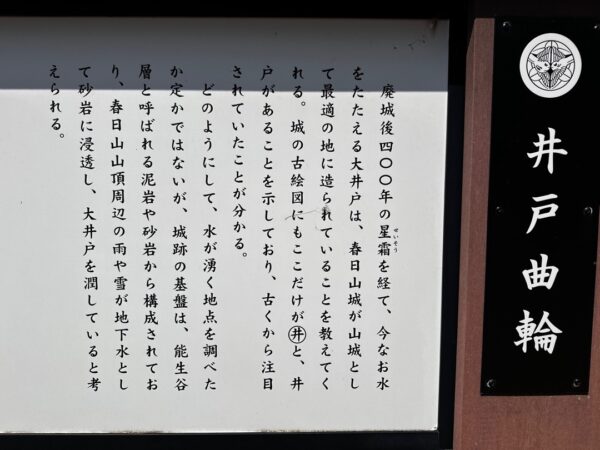 井戸曲輪
廃城後四〇〇年の星霜を経て、今なお水
せいそう
をたたえる大井戸は、春日山城が山城とし
て最適の地に造られていることを教えてく
れる。城の古絵図にもここだけが㊓と、井
戸があることを示しており、古くから注目
されていたことが分かる。
どのようにして、水が湧く地点を調べた
か定かではないが、城跡の基盤は、能生谷
層と呼ばれる泥岩や砂岩から構成されてお
り、春日山山頂周辺の雨や雪が地下水とし
て砂岩に浸透し、大井戸を潤していると考
えられる。